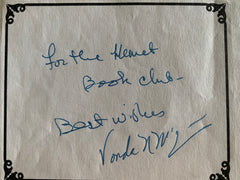 For the Hemet
Book club-
Best wishes
Vonda N Mc